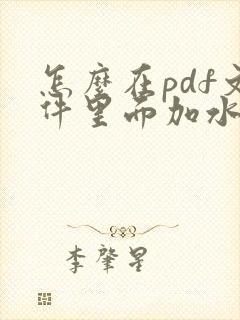 怎麼在pdf文
件里而加水
李肇星